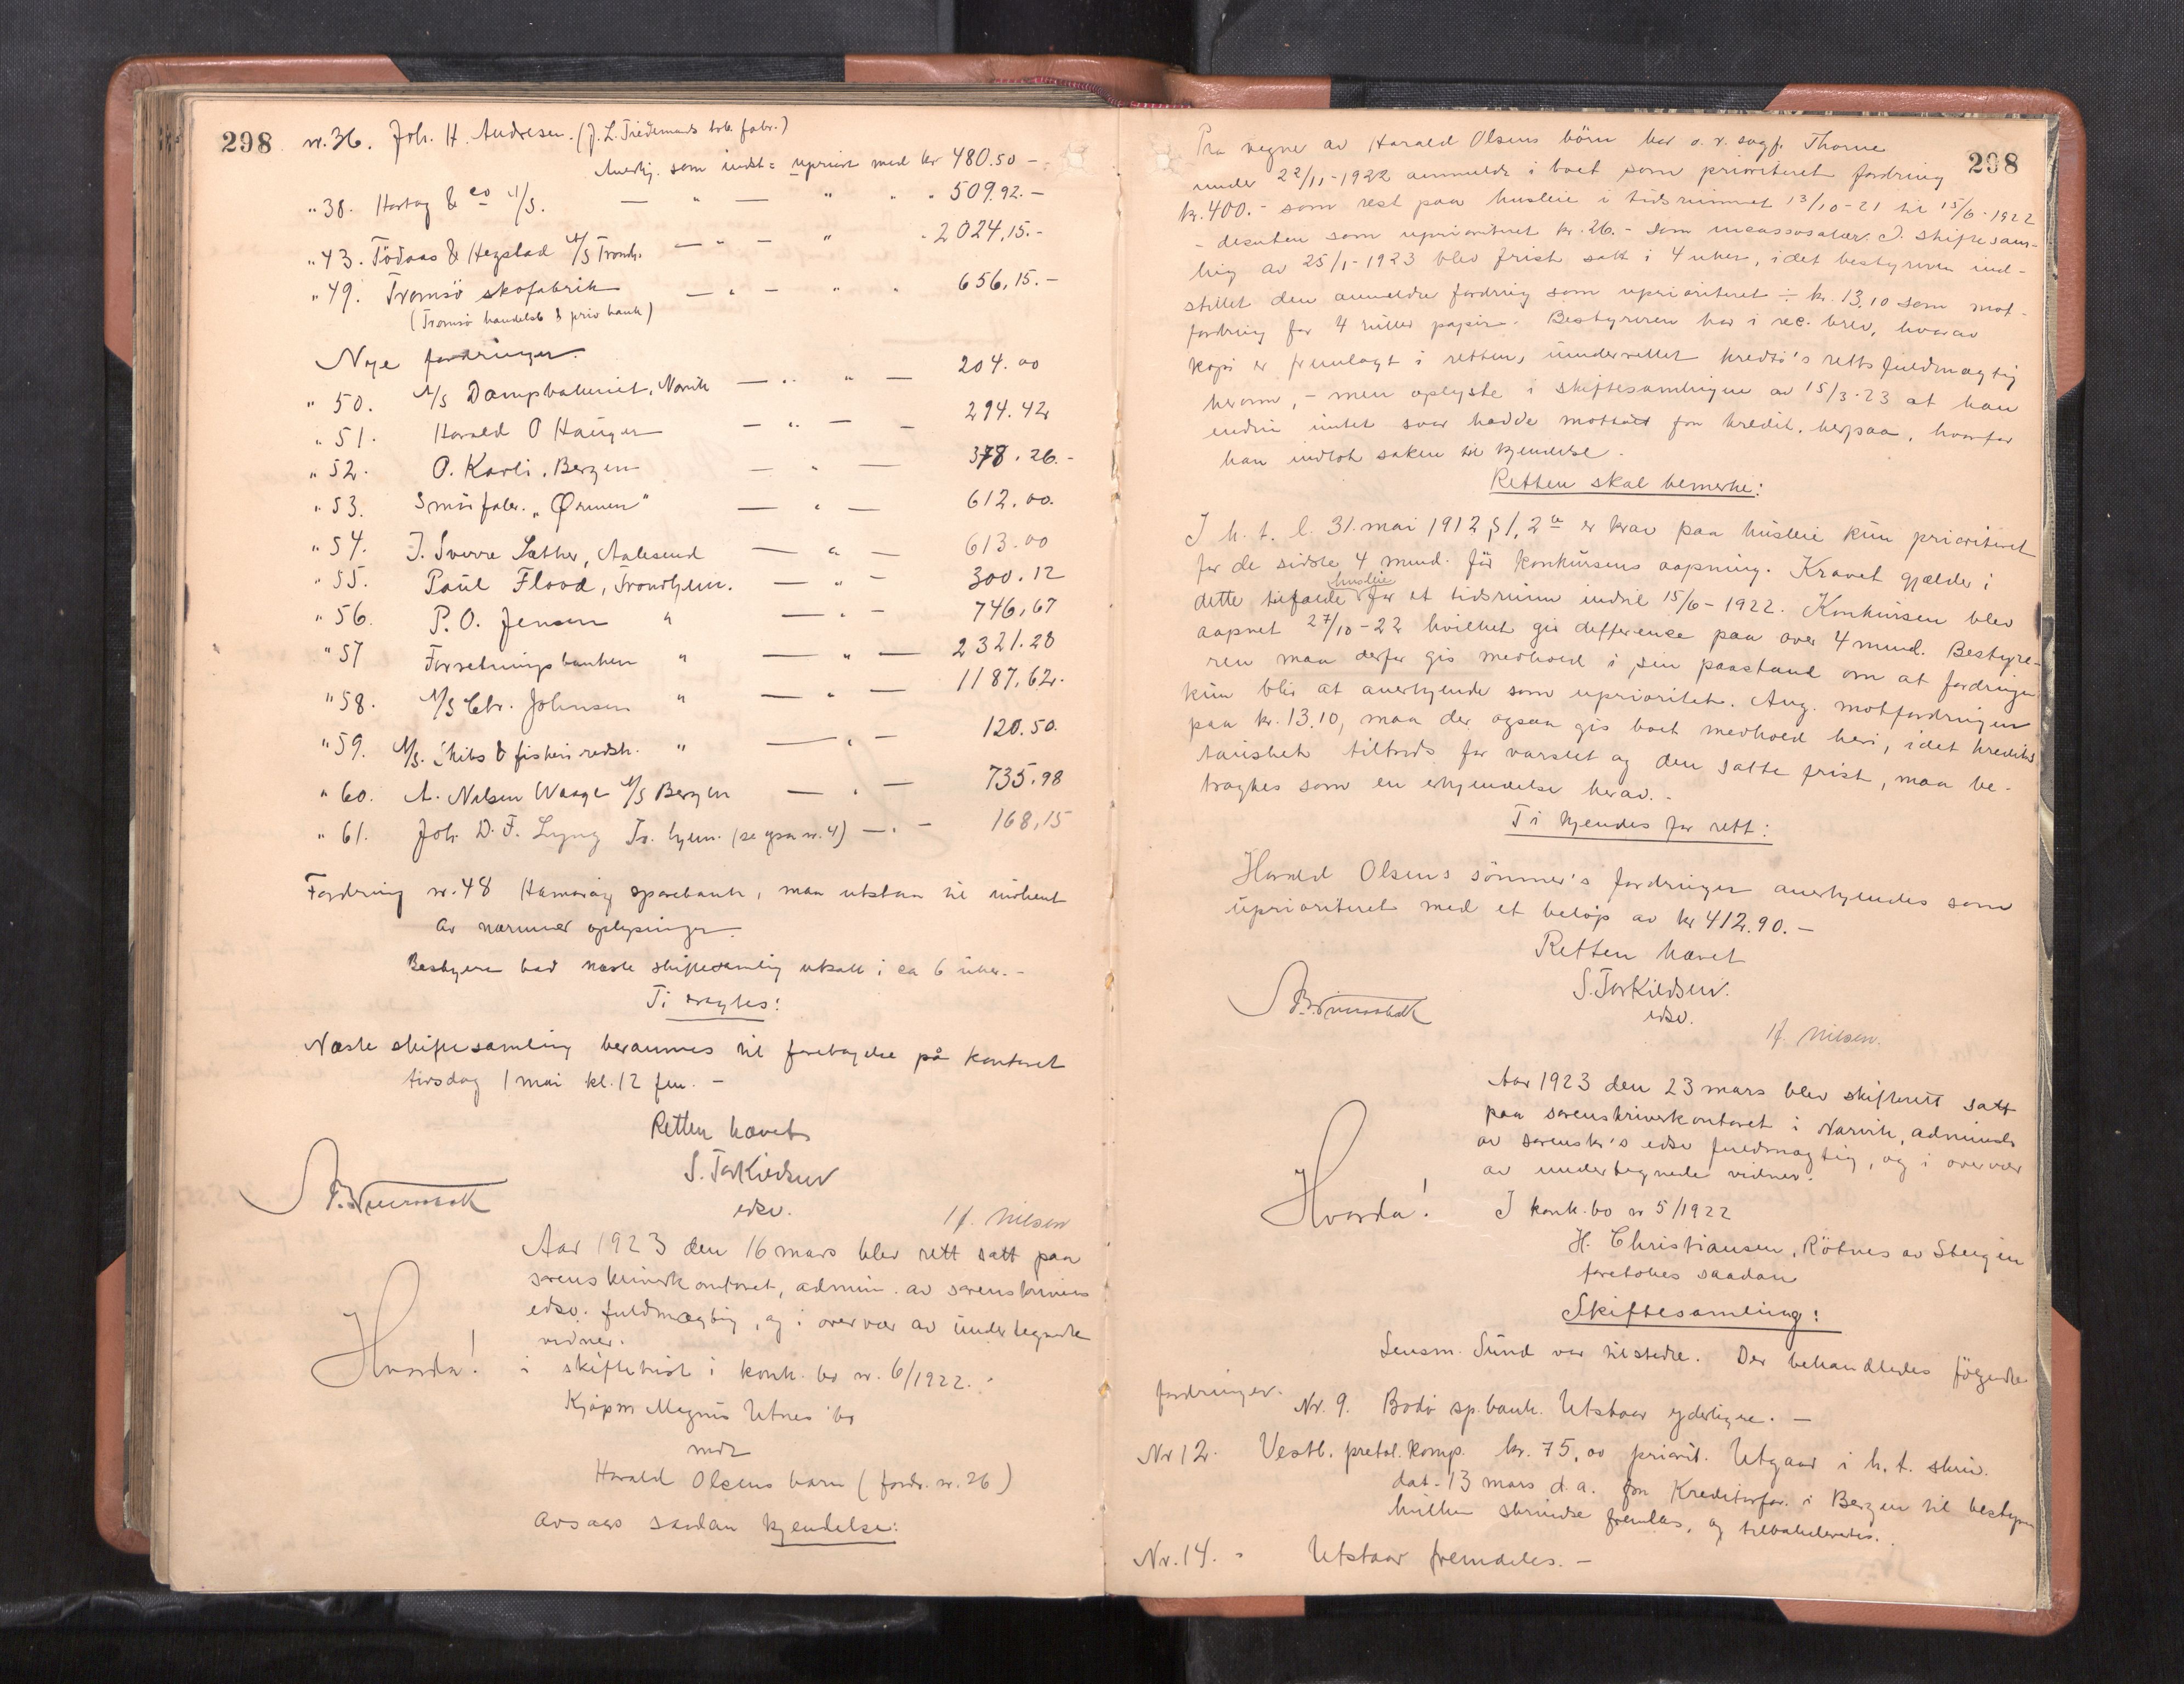 298
nr. 36. Joh. H. Andresen. (J. L. Tiedemands tob. fabr.)
Anerkj. som indst = upriort med kr 480.50 -
" 38. Hartog & co A/S. — " — " " " 509.92. -
" 43. Tödaas & Hegstad A/S Trondh. — " — " " 2024,15. -
" 49. Tromsö skofabrik — " — " " 656,15. -
(Tromsö handelsb & priv bank)
Nye fordringer.
" 50. A/S Dampbakeriet, Narvik — " " — 204.00
" 51. Harald O Hauger — " — — 294.42
" 52. O. Karli, Bergen — " — 378.26. -
" 53. Smörfabr. „Ørnen" — " — 612.00.
" 54. J. Sverre Sæther, Aalesund — " — 613.00
" 55. Paul Flood, Trondhjem. — " — 300.12
" 56. P. O. Jensen " — " — 746,67
" 57 Forretningsbanken " — " — 2321.28
" 58. A/S Chr. Johnsen " — " — 1187,62.
" 59. A/S. Skibs & fiskeriredsk. " — " — 120.50.
" 60. A. Nilsen Waage A/S Bergen — " — 735.98
" 61. Joh. D. F. Lyng Tr. hjem. (se ogsaa nr. 4) — " — 168,15
Fordring nr. 48 Hamarøy sparebank, maa utstaa til indhent
av nærmere oplysninger.
Bestyrer bad næste skiftesamling utsatt i ca 6 uker. -
Ti vragtes:
Næste skiftesamling berammes til foretagelse på kontoret
tirsdag 1 mai kl. 12 fm. -
Retten hævet
S. Torkildsen
edsv.
H. Nilsen
Aar 1923 den 16 mars blev rett satt paa
sorenskriverkontoret, admin. av sorenskriverens
edsv. fuldmægtig, og i overvær av undertegnede
vidner.
Hvorda! i skiftetvist i konk. bo nr. 6/1922. :
Kjøpm Magnus Utnes' bo
mot
Harald Olsens barn (fordr. nr. 26)
avsaes saadan kjendelse:
298
Paa vegne av Harald Olsens börn har o. r. sagf. Thorne
under 22/11-1922 anmeldt i boet som prioriteret fordring
kr. 400. - som rest paa husleie i tidsrummet 13/10-21 til 15/6-1922
- desuten som uprioriteret kr. 26. - som incassosalær. I skiftesam-
ling av 25/1-1923 blev frist satt i 4 uker, idet bestyreren ind-
stillet den anmeldte fordring som uprioriteret ÷ kr. 13.10 som mot-
fordring for 4 ruller papir. Bestyreren har i rec. brev, hvorav
kopi er fremlagt i retten, underrettet kreditor's rettsfuldmægtig
herom, - men oplyste i skiftesamlingen av 15/3-23 at han
endnu intet svar hadde mottatt fra kredit. herpaa, hvorfor
han indlot saken til kjendelse.
Retten skal bemerke:
I h. t. l. 31. mai 1912 § 1, 2 er krav paa husleie kun prioriteret
for de sidste 4 mnd. för konkursens aapning. Kravet gjælder i
dette tilfælde husleie for et tidsrum indtil 15/6-1922. Konkursen blev
aapnet 27/10-22 hvilket gir defference paa over 4 mnd. Bestyre-
ren maa derfor gis medhold i sin paastand om at fordringen
kun blir at anerkjende som uprioritet. Ang. motfordringen
paa kr. 13.10, maa der ogsaa gis boet medhold heri, idet kreditors
taushet tiltrods for varslet og den satte frist, maa be-
tragtes som en erkjendelse herav. -
Ti kjendes for rett:
Harald Olsens sönner's fordringer anerkjendes som
uprioriteret med et belöp av kr 412.90. -
Retten hævet
S. Torkildsen.
edsv.
H. Nilsen.
Aar 1923 den 23 mars blev skifterett satt
paa sorenskriverkontoret i Narvik, administr.
av sorenskr's edsv fuldmægtig, og i overvær
av undertegnede vidner.
Hvorda! I konk. bo nr 5/1922
H. Christiansen, Rötnes av Steigen
foretokes saadan
Skiftesamling:
Lensm. Sund var tilstede. Der behandledes fölgende
fordringer. Nr. 9. Bodö sp. bank. Utstaar yderligere. —
Nr 12. Vestl. pretol. komp. kr. 75,00 priorit. Utgaar i h. t. skriv.
dat. 13 mars d. a. fra Kreditorfor. i Bergen til bestyrer
hvilken skrivelse fremlas, og tilbakeleveres.
Nr. 14. - Utstaar fremdeles. -